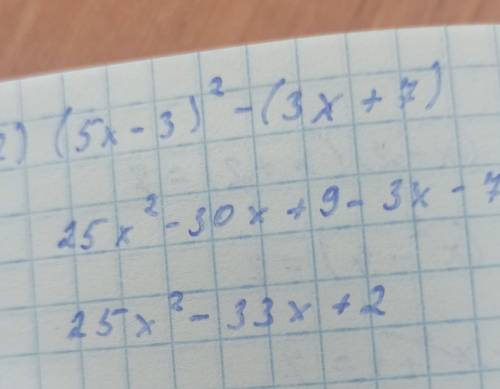 2) (5x - 3)² - (3x + 7)
25x² - 30x + 9 - 3x - 7
25x² - 33x + 2